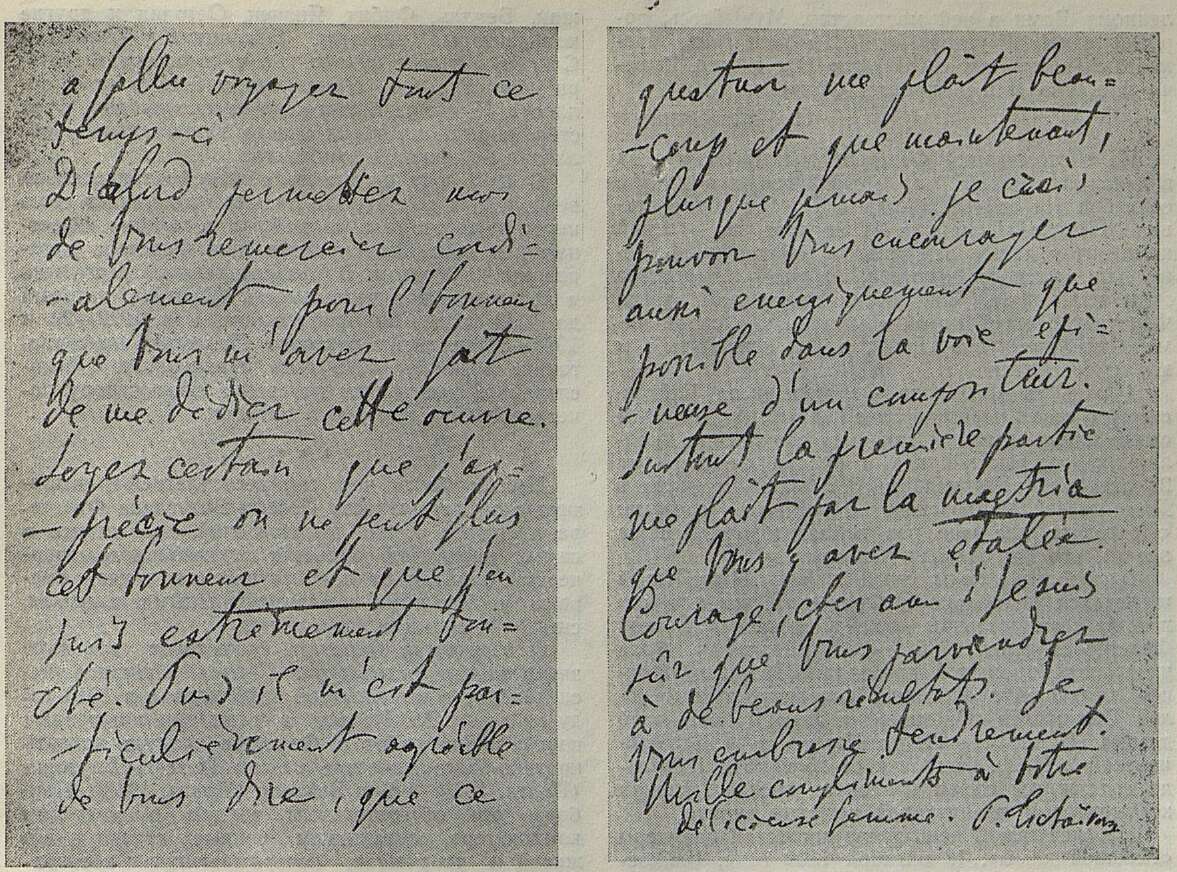 a fallu voyager tout ce
temps-ci
D'abord permettez moi
de Vous remercier cordi=
-alement pour l'honneur
que Vous m'avez fait
de me dédier cette oeuvre.
Soyez certain que j'ap-
-précie on ne peut plus
cet honneur et que j'en
suis extrêmement tou=
ché. Puis il m'est par-
-ticulièrement agréable
de Vous dire, que ce
quatuor me plaît beau=
-coup et que maintenant,
plus que jamais je crois
pouvoir Vous encourager
aussi energiquement que
possible dans la voie épi=
-neuse d'un compositeur.
Surtout la première partie
me plaît par la maestria
que Vous y avez étalée.
Courage, cher ami! Je suis
sûr que Vous parviendrez
à de beaux résultats. Je
Vous embrasse tendrement.
Mille compliments à Votre
délicieuse femme. P. Tschaïkovsky